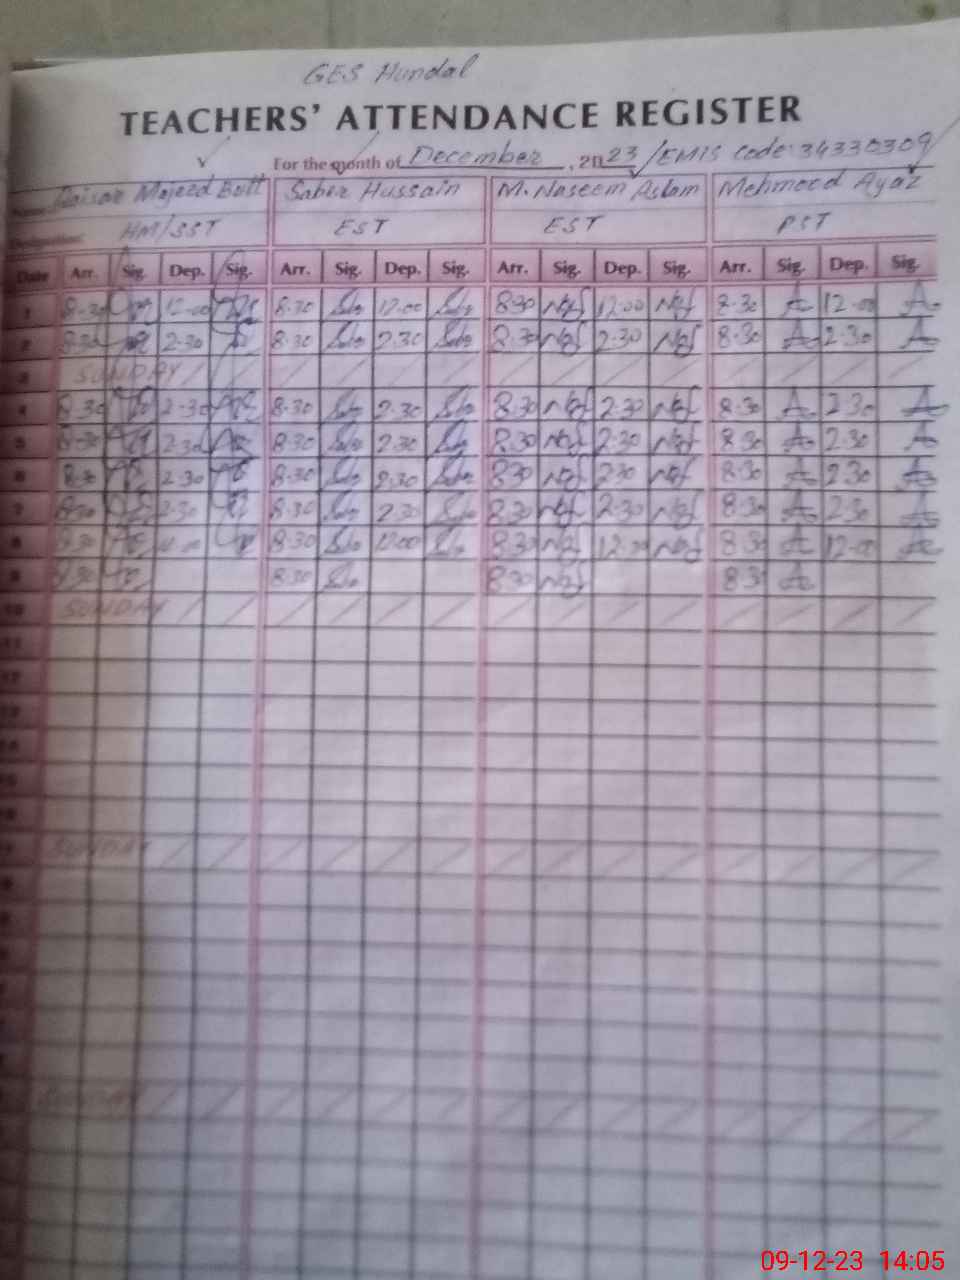 GES Hundal
TEACHERS' ATTENDANCE REGISTER
For the month of December, 2023/EMIS code: 34330309
Name Qaisar Majeed Butt Saber Hussain M. Naseem Aslam Mehmood Ayaz
Designation: HM/SST EST EST PST
Date Arr. Sig. Dep. Sig. Arr. Sig. Dep. Sig. Arr. Sig. Dep. Sig. Arr. Sig. Dep. Sig.
1 8-30 12-00 8-30 12-00 8-30 12-00 8-30 12-00
2 8-30 2-30 8-30 2-30 8-30 2-30 8-30 2-30
3 SUNDAY
4 8-30 2-30 8-30 2-30 8-30 2-30 8-30 2-30
5 8-30 2-30 8-30 2-30 8-30 2-30 8-30 2-30
6 8-30 2-30 8-30 2-30 8-30 2-30 8-30 2-30
7 8-30 2-30 8-30 2-30 8-30 2-30 8-30 2-30
8 8-30 8-30 12-00 8-30 12-00 8-30 12-00
9 8-30 8-30 8-30 8-30
10 SUNDAY
11
12
13
14
15
SUNDAY
SUNDAY
09-12-23 14:05